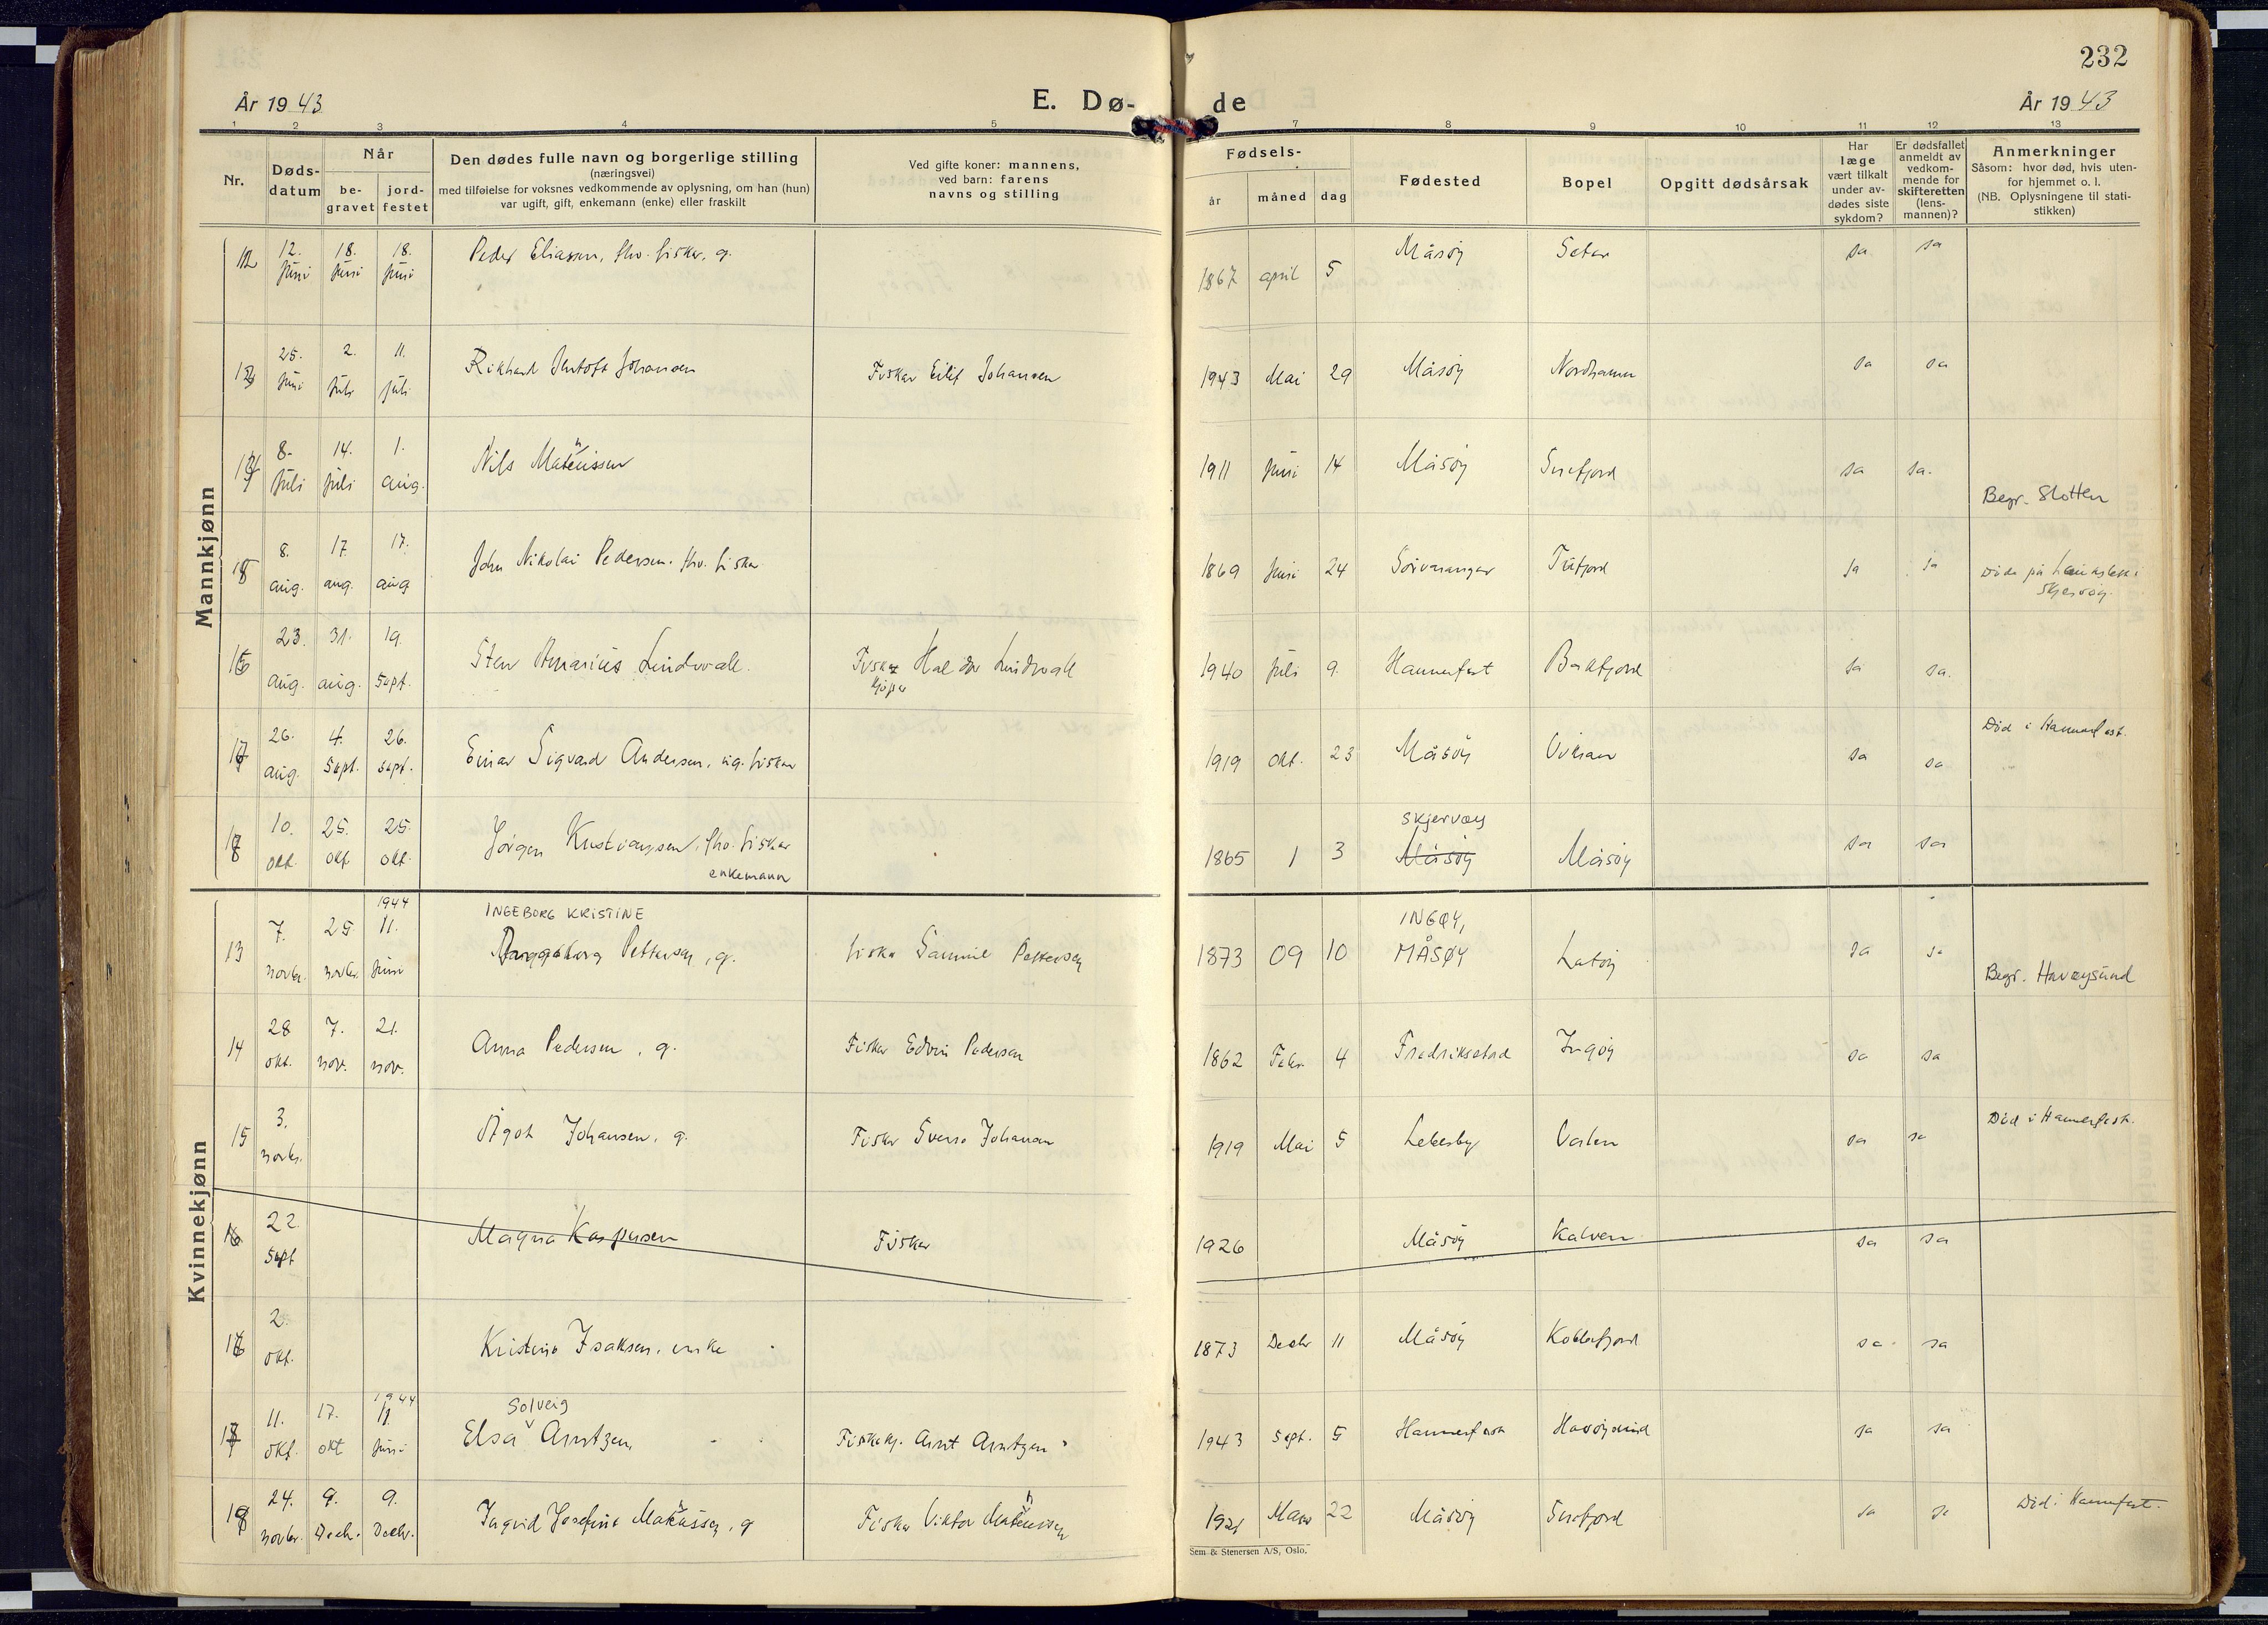 232
År 1943 E. Dø- de År 1943
1 2 3 4 5 7 8 9 10 11 12 13
Nr.
Døds-
datum
Når
be-
gravet
jord-
festet
Den dødes fulle navn og borgerlige stilling
(næringsvei)
med tilføielse for voksnes vedkommende av oplysning, om han (hun)
var ugift, gift, enkemann (enke) eller fraskilt
Ved gifte koner: mannens,
ved barn: farens
navns og stilling
Fødsels-
år måned dag
Fødested
Bopel
Opgitt dødsårsak
Har
læge
vært tilkalt
under av-
dødes siste
sykdom?
Er dødsfallet
anmeldt av
vedkom-
mende for
skifteretten
(lens-
mannen)?
Anmerkninger
Såsom: hvor død, hvis uten-
for hjemmet o. l.
(NB. Oplysningene til stati-
stikken)
Mannkjønn
12 12. juni 18. juni 18. juni Peder Eliassen, fhv. fisker, g. 1867 april 5 Måsöy ja ja
13 25. juni 2. juli 11. juli Rikhard Johansen Fisker Eilif Johansen 1943 Mai 29 Måsöy Nordhamn ja ja
14 8. juli 14. juli 1. aug. Nils Mateussen 1911 juni 14 Måsöy Snefjord ja ja.
Begr. Slotten
15 8. aug. 17. aug. 17. aug John Nikolai Pedersen. fhv. fisker 1869 juni 24 Sörvaranger Tufjord ja ja
Skjervöy.
16 23. aug. 31. aug. 19. sept. Sten Lindvall. Fisker Haldor Lindvall 1940 juli 9. Hammerfest Bakfjord ja ja.
kjöper
17 26. aug. 4. sept. 26. sept. Einar Sigvard Andersen, ug. fisker 1919 okt. 23 Måsöy ja ja
Död i Hammerfest.
18 10. okt. 25. okt. 25. okt. Jörgen Kristiansen, fhv. fisker 1865 1 3 Måsöy Måsöy ja ja
enkemann
Skjervøy
Kvinnekjønn
INGEBORG KRISTINE
13 7. novbr. 29. novbr. 1944 11. juni Pettersen, g. fisker Samuel Pettersen 1873 09 10 INGØY,
MÅSØY Latöy ja ja
Begr. Havøysund
14 28 okt. 7. nov. 21. nov. Anna Pedersen, g. Fisker Edvin Pedersen 1862 Febr. 4 Fredrikstad Ingöy ja ja
15 3. novbr. Ågot Johansen, g. Fisker Sverre Johansen 1919 Mai 5 Lebesby ja ja
Död i Hammerfest.
16 22 sept Magna Kaspersen Fisker 1926 Måsöy Kalven ja ja
16 2. okt. Kristine Isaksen, enke 1873 Decbr 11 Måsöy Kobbefjord ja ja
Solveig
17 11. okt. 17. okt 1944 11. juni Elsa Arntzen Fiskekj. Arnt Arntzen 1943 sept. 5 Hammerfest Havöysund ja ja
18 24. novbr. 9. Decb. 9. Decbr. Ingrid Josefine Mateussen, g Fisker Viktor Mateussen 1921 Mars 22 Måsöy Snefjord ja ja
Död i Hammerfest.
Sem & Stenersen A/S, Oslo.